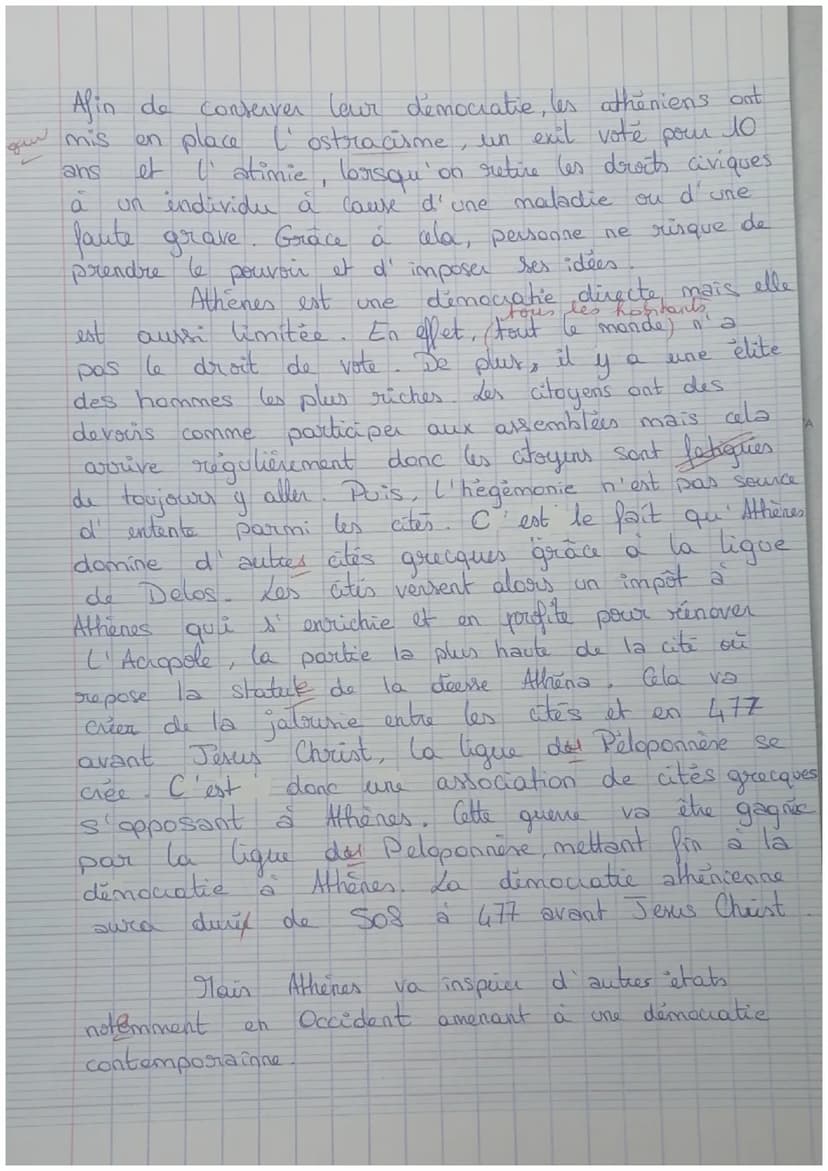 Afin de conserver leur démocratie, les athéniens ont
mis en place l'ostracisme, un exil voté pour 10
ans et l'atimie, lorsqu'on retire les droits civiques
à un individu à cause d'une maladie ou d'une
faute grave. Grâce à cela, personne ne risque de
prendre le pouvoir et d'imposer ses idées.
Athènes est une démocratie directe mais elle
tous les habitants
est aussi limitée. En effet, (tout le monde) n'a
pas le droit de vote. De plus, il y a une élite
des hommes les plus riches. Les citoyens ont des
devoirs comme participer aux assemblées mais cela
arrive régulièrement donc les citoyens sont fatigués
de toujours y aller. Puis, l'hégémonie n'est pas source
d'entente parmi les cités. C'est le fait qu'Athènes
domine d'autres cités grecques grâce à la ligue
de Delos. Les cités versent alors un impôt à
Athènes qui s'enrichie et en profite pour rénover
l'Acropole, la partie la plus haute de la cité où
repose la statue de la déesse Athéna. Cela va
créer de la jalousie entre les cités et en 477
avant Jésus Christ, la ligue du Péloponnèse se
crée. C'est donc une association de cités grecques
s'opposant à Athènes. Cette guerre va être gagnée
par la ligue du Peloponnèse, mettant fin à la
démocratie à Athènes. La démocratie athénienne
aura duré de 508 à 477 avant Jesus Christ.
Mais Athènes va inspirer d'autres états
notemment en Occident amenant à une démocratie
contemporainne.